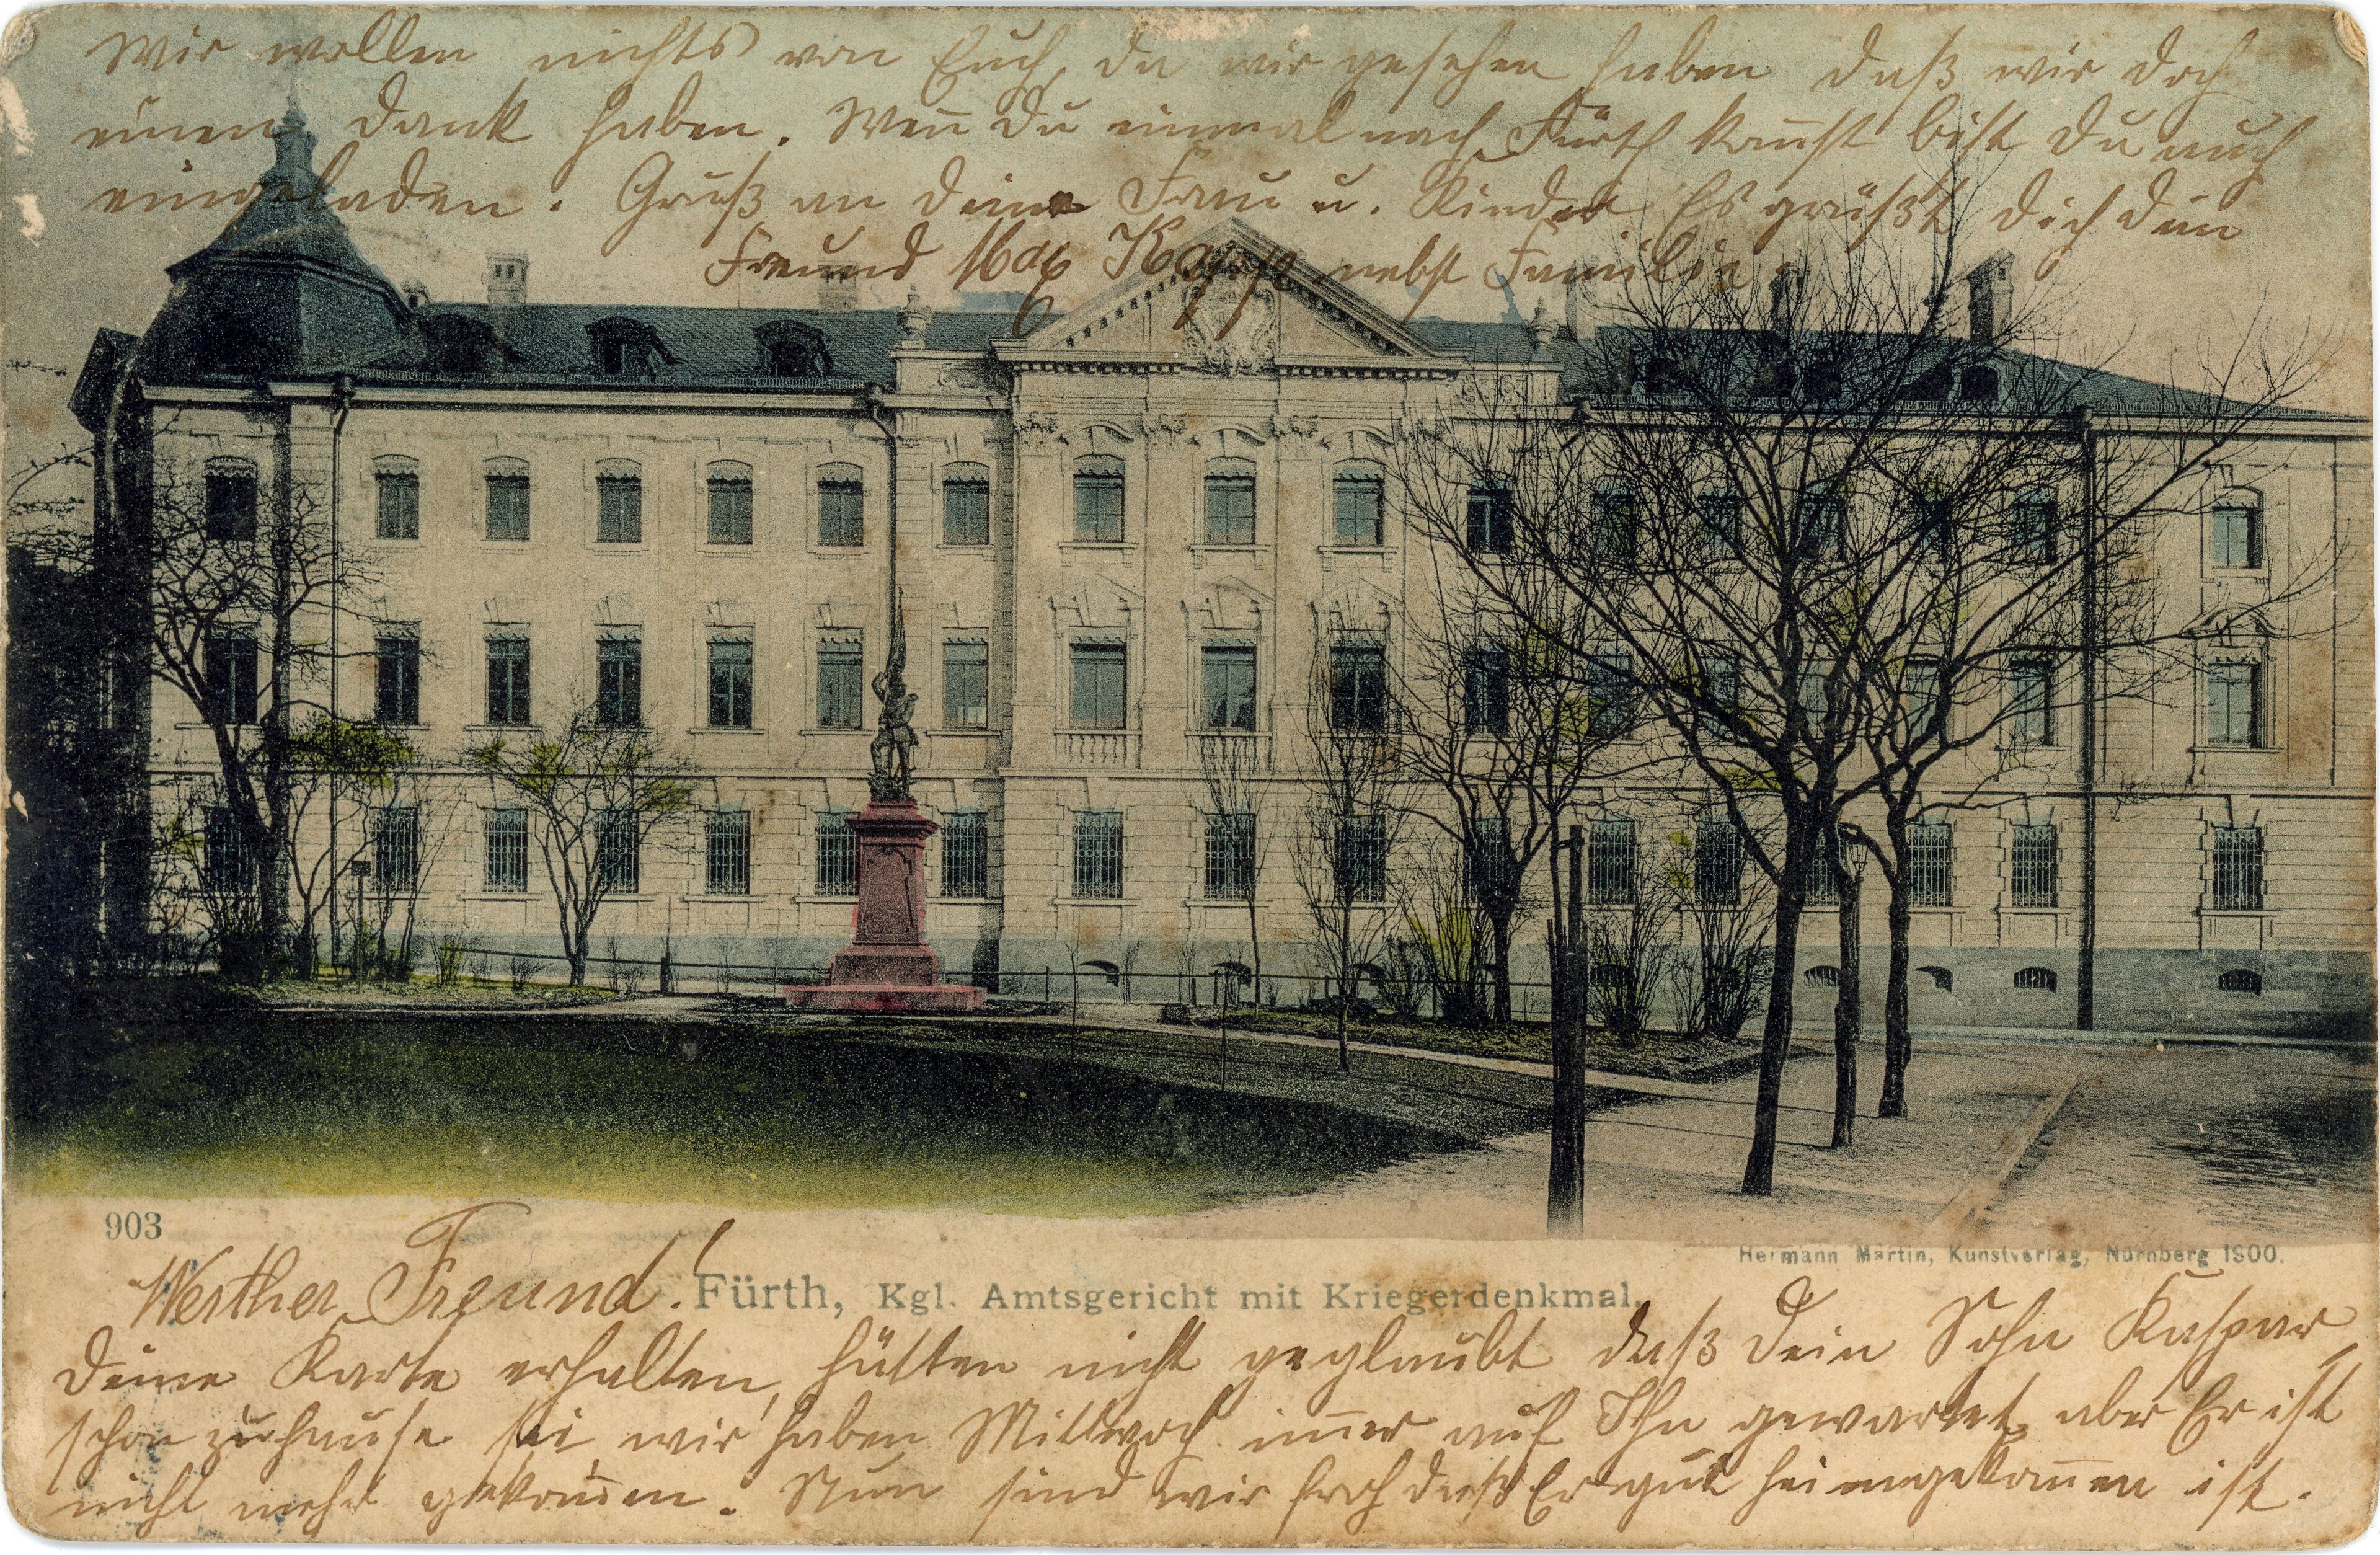 Wir wollen nichts von Euch, da wir gesehen haben daß wir doch
einen Dank haben. Weñ Du einmal nach Fürth kom̄st bist Du auch
eingeladen. Gruß an Deine Frau u. Kinder Es grüßt Dich Dein
Freund Max Kapp nebst Familie.
903
Hermann Martin, Kunstverlag, Nürnberg 1900.
Werther Freund!
Fürth, Kgl. Amtsgericht mit Kriegerdenkmal.
Deine Karte erhalten, hätten nicht geglaubt daß Dein Sohn Kaspar
schon zuhause sei wir haben Mittwoch im̄er auf Ihn gewartet, aber Er ist
nicht mehr gekom̄en. Nun sind wir froh daß Er gut heimgekom̄en ist.